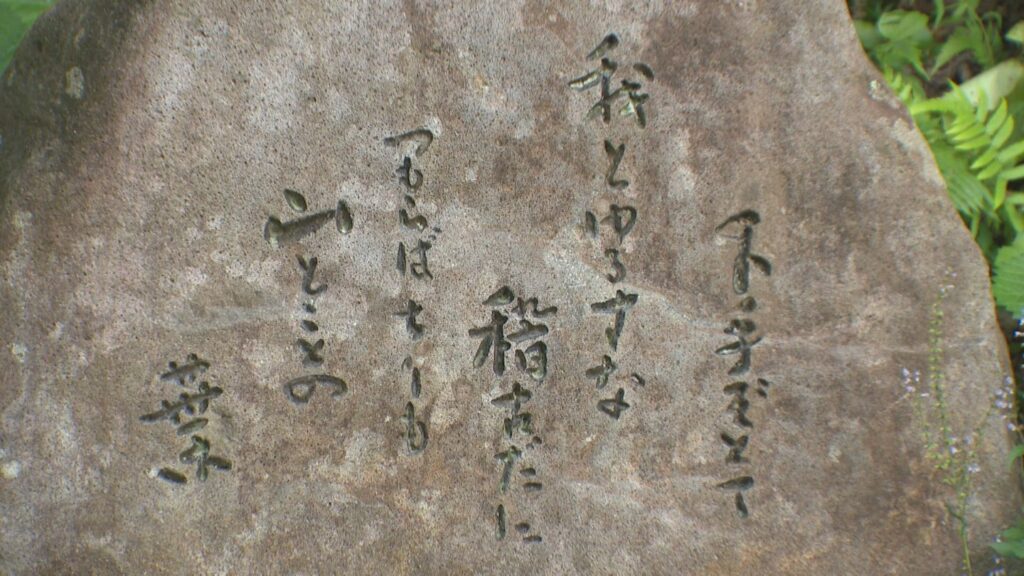 下手ぞとて
我とゆるすな
稽古だに
つもらばちりも
山とことの
葉